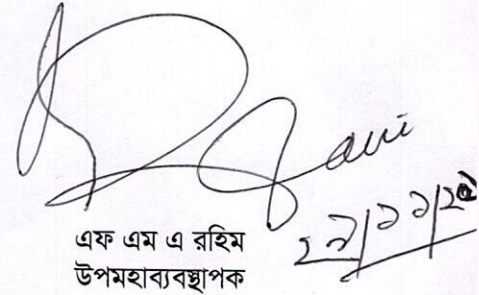 ২৯/১১/২০
এফ এম এ রহিম
উপমহাব্যবস্থাপক